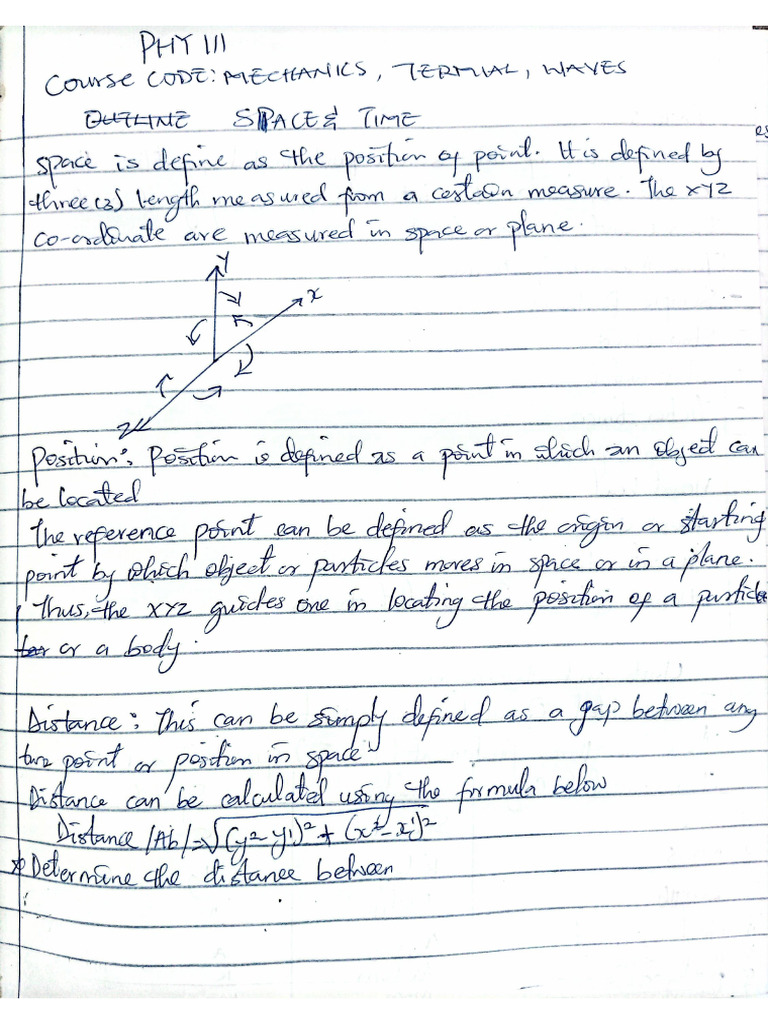 PHY 111
COURSE CODE: MECHANICS, TERMIAL, WAVES
OUTLINE SPACE & TIME
space is define as the position of point. It is defined by
three (3) length measured from a certain measure. The XYZ
co-ordinate are measured in space or plane.
Y
x
Z
Position: Position is defined as a point in which an object can
be located
The reference point can be defined as the origin or starting
point by which object or particles moves in space or in a plane.
Thus, the XYZ guides one in locating the position of a particle
or a body.
Distance: This can be simply defined as a gap between any
two point or position in space
Distance can be calculated using the formula below
Distance |Ab| = √(y2-y1)² + (x2-x1)²
* Determine the distance between